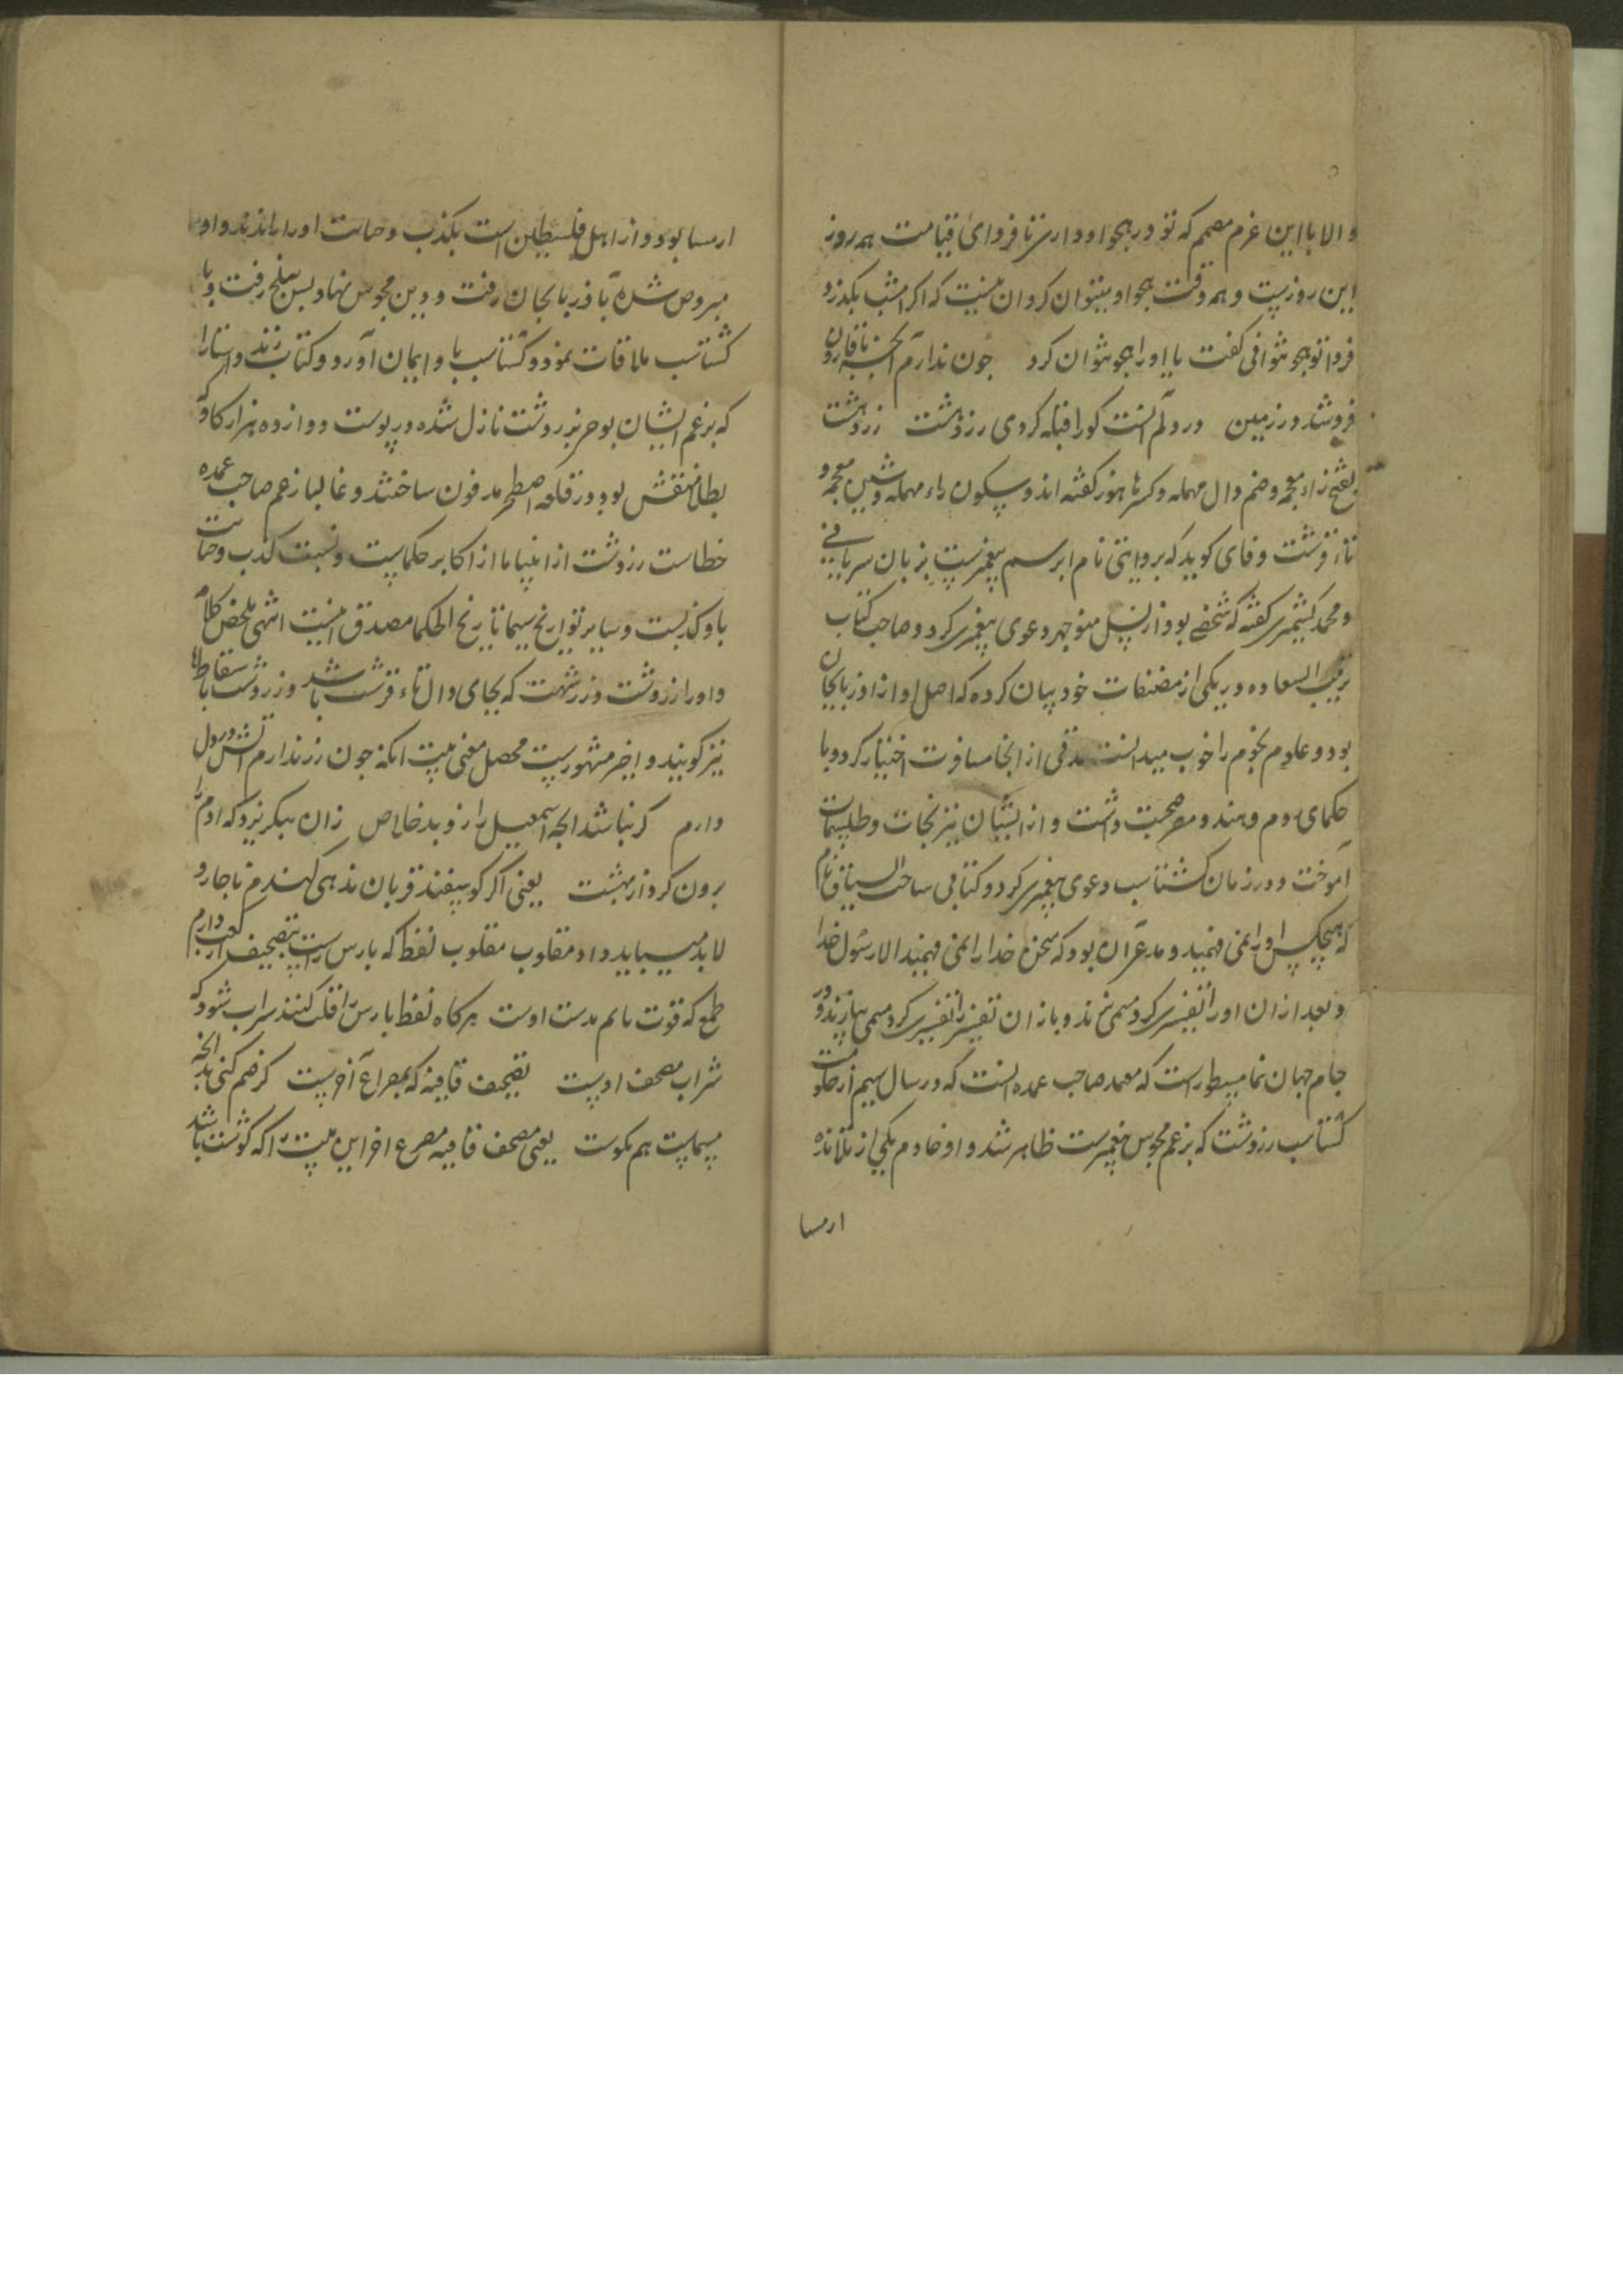 و الا با این عزم مصمم که تو در هجو او داری تا فردای قیامت همه روز
این روزیست و همه وقت هجو او میتوان کرد ان نیست که اکر امشب بکذرد
فردا تو هجو نتوانی کفت یا او را هجو نتوان کرد چون ندارم آنچه با قارون
فروشد در زمین در دلم آنست کورا قبله کردی زردهشت زردهشت
بفتح زاء معجمه و ضم دال مهمله و کسر هاء هوز کفته اند و سکون راء مهمله و شین معجمه و
تاء قرشت وفای کوید که بروایتی نام ابرهیم پیغمبرست بزبان سریانی
و محمد کشمیری کفته که شخصی بود از نسل منوچهر دعوی پیغمبری کرد و صاحب کتاب
ترتیب السعاده در یکی از مصنفات خود بیان کرده که اصل او از اذربایجان
بود و علوم نجوم را خوب میدانست مدتی از انجا مسافرت اختیار کرد و با
حکمای روم و هند و مصر صحبت داشت و از ایشان نیرنجات و طلسمات
آموخت و در زمان کشتاسب دعوی پیغمبری کرد و کتابی ساخت نام
که هیچکس او را نمی فهمید و مدعی آن بود که سخن خدا را نمی فهمید الا رسول خدا
و بعد از ان او را تفسیری کرد مسمی بزند و باز ان تفسیر را تفسیری کرد مسمی بپازند و در
جام جهان نما مسطور است که معتمد صاحب عمده انست که در سال سیم از حکومت
کشتاسب زردشت که بزعم مجوس پیغمبرست ظاهر شد و او خادم یکی از تلامذه
ارمیا
ارمیا بود و از اهل فلسطین است بکذب و خیانت او را راندند و او
مبروص شده باذربایجان رفت و دین مجوس نهاد پس ببلخ رفت و با
کشتاسب ملاقات نمود و کشتاسب باو ایمان آورد و کتاب زند و استا را
که بزعم ایشان بوحی بزردشت نازل شده در پوست دوازده هزار کاو که
بطلا منقش بود در قلعه اصطخر مدفون ساختند و غالبا زعم صاحب عمده
خطاست زردشت از انبیا یا از اکابر حکماست و نسبت کذب و خیانت
باو کذبست و سایر تواریخ سیما تاریخ الحکما مصدق اینست انتهی ملخص کلامه
و او را زردشت و زرتشت که بجای دال تاء قرشت باشد و زردشت باسقاط ها
نیز کویند و اخیر مشهورست محصل معنی بیت انکه چون زر ندارم آتش در دل
دارم کر نباشد انچه اسمعیل را زو بد خلاص زان بنکریزد که ادم را
برون کرد از بهشت یعنی اکر کوسپند قربان ندهی کندم ناچار و
لابد میباید داد مقلوب مقلوب نفط که بارس راست بتصحیف از کف دارم
طمع که قوت مالم بدست اوست هرکاه نفط بارس را قلب کنند سراب شود که
شراب مصحف اوست تصحیف قافیه که بمصراع آخرست کر ضم کنی بدانچه
مسماست هم نکوست یعنی مصحف قافیه مصرع اخر این بیت را که کوشت باشد